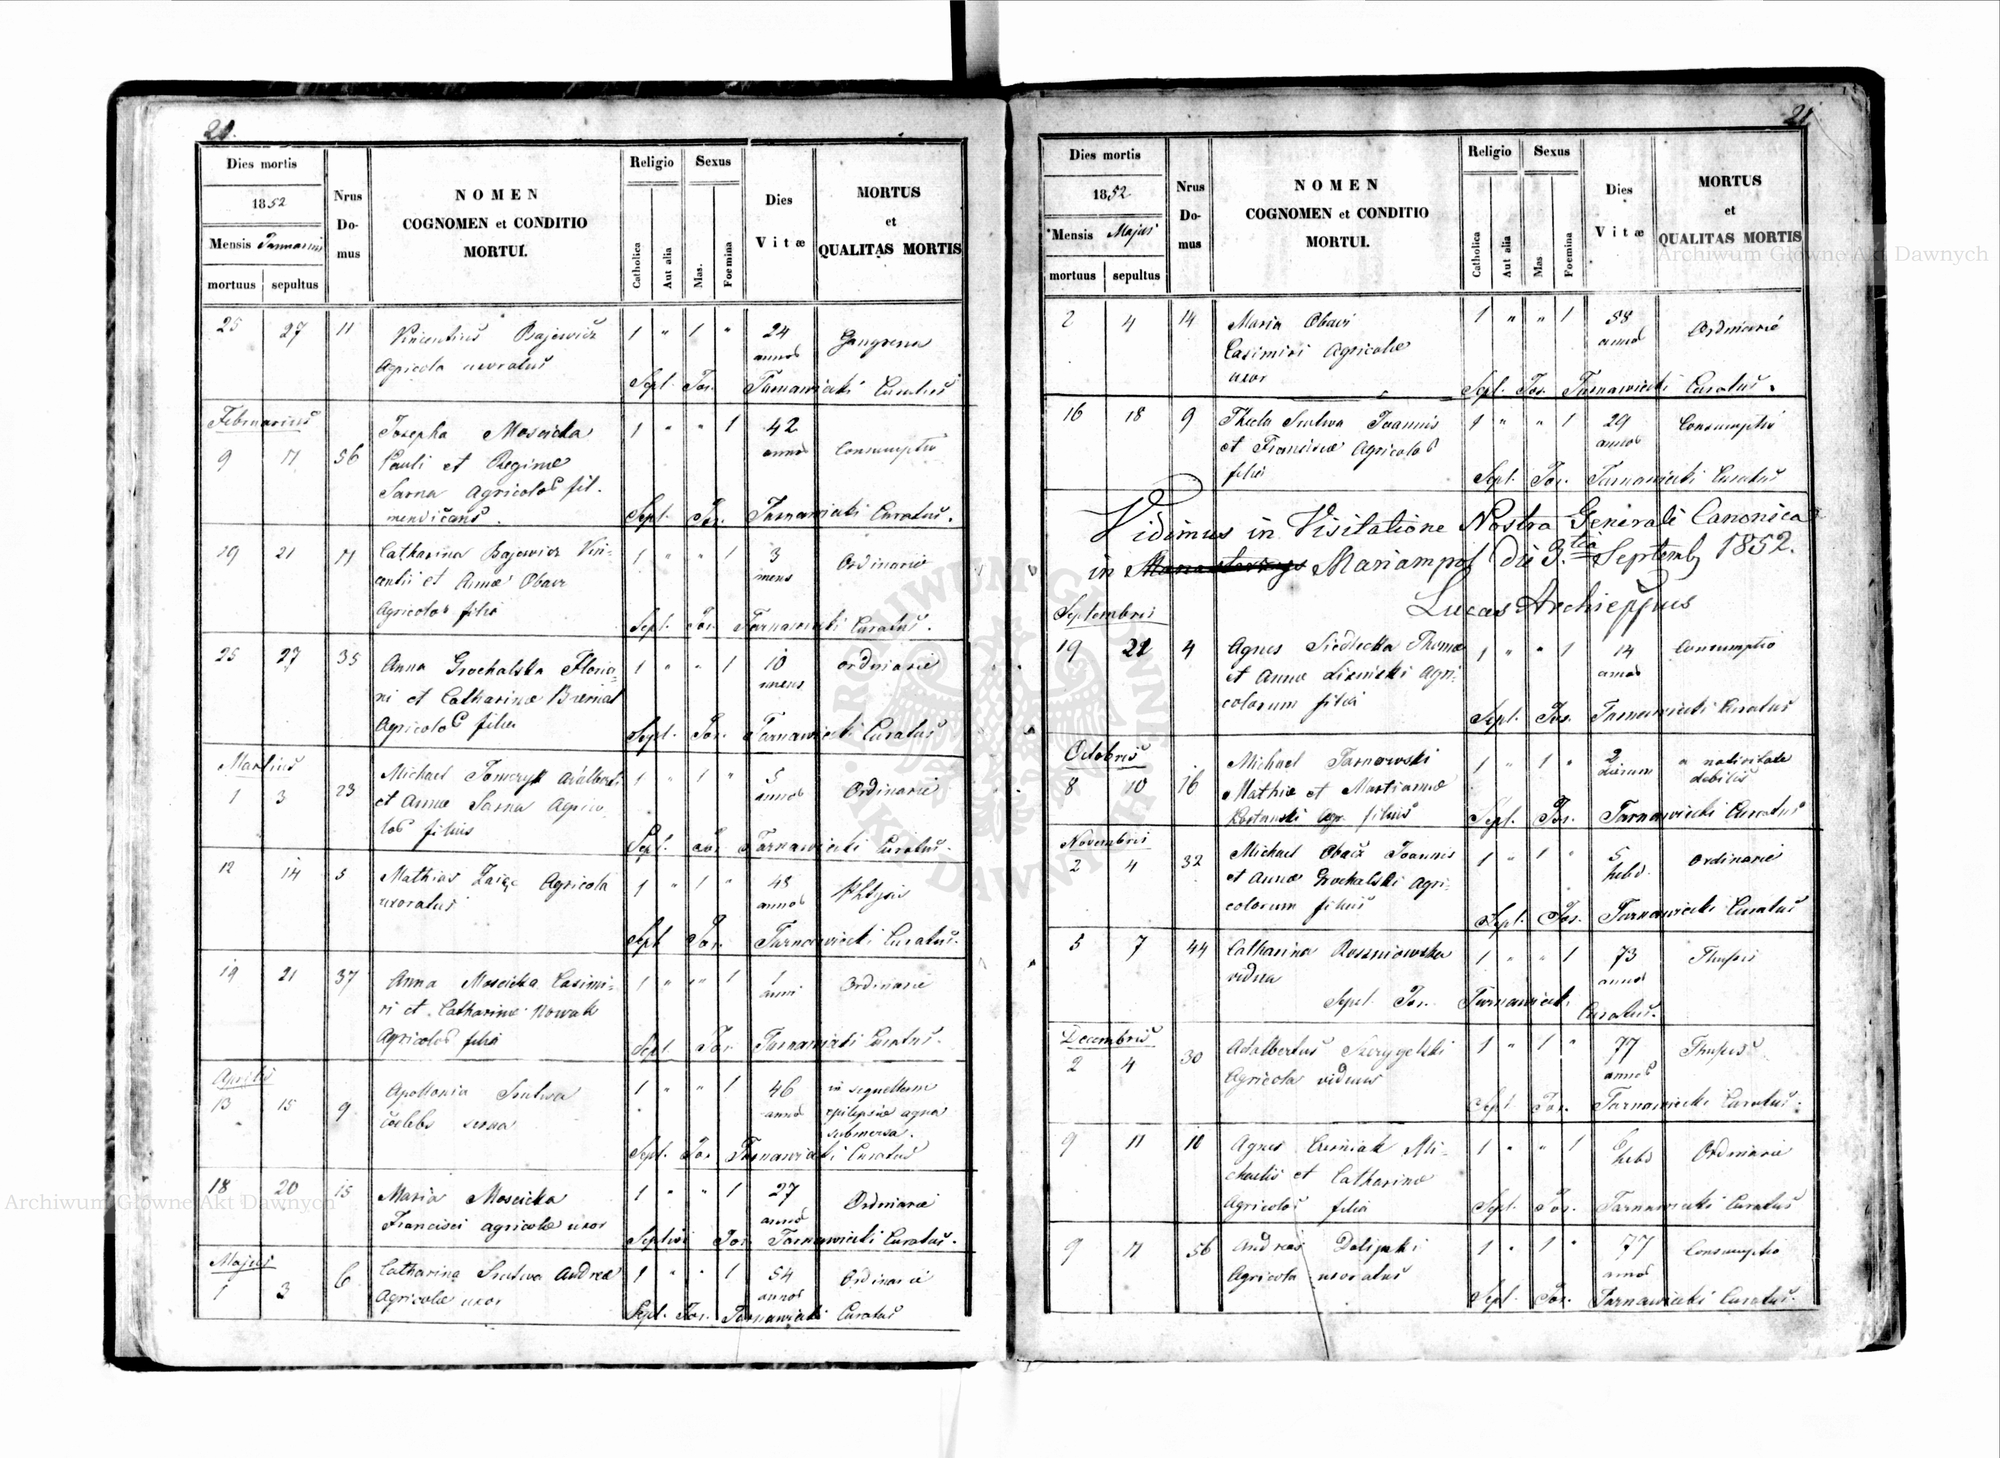 20.
Dies mortis
1852
Mensis Januarius
mortuus sepultus
Nrus Do- mus
NOMEN
COGNOMEN et CONDITIO
MORTUI.
Religio
Catholica
Aut alia
Sexus
Mas.
Foemina
Dies
Vitæ
MORTUS
et
QUALITAS MORTIS
25 27 11 Vincentius Bajewicz 1 " 1 " 24 Gangrena
Agricola uxoratus annos
Sepl. Jos. Tarnawiecki Curatus
Februarius
9 11 56 Josepha Moscicka 1 " " 1 42 Consumptio
Pauli et Reginæ annos
Sarna Agricolos fil.
mendicans.
Sepl. Jos. Tarnawiecki Curatus.
19 21 11 Catharina Bajewicz Vin- 1 " " 1 3 Ordinarie
centii et Annæ Obacz mens
Agricolos filia
Sepl. Jos. Tarnawiecki Curatus.
25 27 35 Anna Grochalska Floria- 1 " " 1 10 Ordinarie
ni et Catharinæ mens
Agricolos filia
Sepl. Jos. Tarnawiecki Curatus
Martius
1 3 23 Michael Tomczyk Adalberti 1 " 1 " 5 Ordinarie
et Annæ Sarna Agrico- annos
los filius
Sepl. Jos. Tarnawiecki Curatus.
12 14 5 Mathias Zaięc Agricola 1 " 1 " 48 Phtysis
uxoratus annos
Sepl. Jos. Tarnawiecki Curatus.
19 21 37 Anna Moscicka Casimi- 1 " " 1 1 Ordinarie
ri et Catharinæ Nowak anni
Agricolos filia
Sepl. Jos. Tarnawiecki Curatus.
Aprilis
13 15 9 Apollonia 1 " " 1 46 in sequellam
Cælebs annos epilepsiæ aqua
submersa.
Sepl. Jos. Tarnawiecki Curatus
18 20 15 Maria Moscicka 1 " " 1 27 Ordinarie
Francisci agricolæ uxor annos
Sepelivi Jos. Tarnawiecki Curatus.
Majus
1 3 6 Catharina Andreæ 1 " " 1 54 Ordinarie
Agricolæ uxor annos
Sepl. Jos. Tarnawiecki Curatus
21
Dies mortis
1852
Mensis Majus
mortuus sepultus
Nrus Do- mus
NOMEN
COGNOMEN et CONDITIO
MORTUI.
Religio
Catholica
Aut alia
Sexus
Mas
Foemina
Dies
Vitæ
MORTUS
et
QUALITAS MORTIS
2 4 14 Maria Obacz 1 " " 1 58 Ordinarie
Casimiri Agricolæ annos
uxor
Sepl. Jos. Tarnawiecki Curatus.
16 18 9 Thecla Joannis 1 " " 1 29 Consumptio
et Franciscæ Agricolos annos
filia
Sepl. Jos. Tarnawiecki Curatus
Vidimus in Visitatione Nostra Generali Canonica
in Mariampol die 3tia Septemb 1852.
Lucas Archieppus
Septembris
19 21 4 Agnes Siedlecka Thomæ 1 " " 1 14 Consumptio
et Annæ Agri- annos
colarum filia
Sepl. Jos. Tarnawiecki Curatus
Octobris
8 10 16 Michael Tarnowski 1 " 1 " 2 a nativitate
Mathiæ et Martiannæ dierum debilis
Agr. filius
Sepl. Jos. Tarnawiecki Curatus
Novembris
2 4 32 Michael Obacz Joannis 1 " 1 " 5 Ordinarie
et Annæ Grochalski Agri- hebd.
colarum filius
Sepl. Jos. Tarnawiecki Curatus
5 7 44 Catharina Roszniowska 1 " " 1 73
vidua annos
Sepel. Jos. Tarnawiecki
Curatus.
Decembris
2 4 30 Adalbertus 1 " 1 " 77
Agricola viduus annos
Sepl. Jos. Tarnawiecki Curatus.
9 11 10 Agnes Mi- 1 " " 1 6 Ordinarie
chaelis et Catharinæ hebd
Agricolos filia
Sepl. Jos. Tarnawiecki Curatus
9 11 56 Andreas 1 " 1 " 77 Consumptio
Agricola uxoratus annos
Sepl. Jos. Tarnawiecki Curatus.
Archiwum Główne Akt Dawnych
Archiwum Główne Akt Dawnych
ARCHIWUM GŁÓWNE AKT DAWNYCH